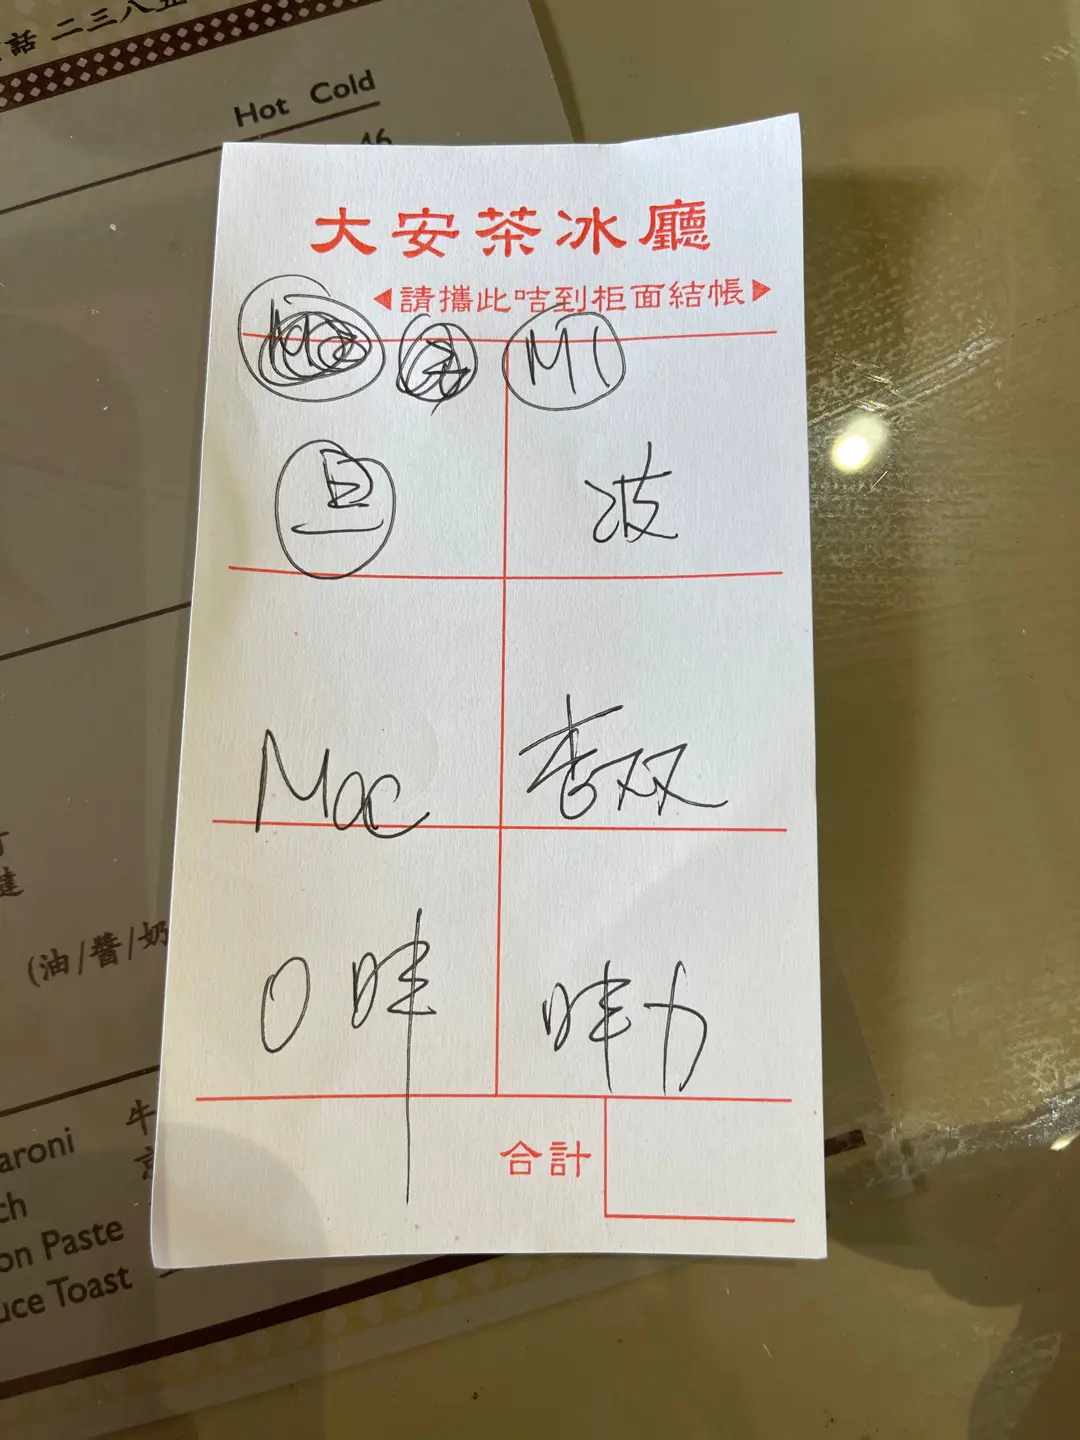 話 二三八五
Hot Cold
46
大安茶冰廳
◀請攜此咭到柜面結帳▶
M1
旦 波
Mac 杏双
O 咩 咩力
(油/醬/奶
合計
aroni 牛
ch
on Paste
uce Toast